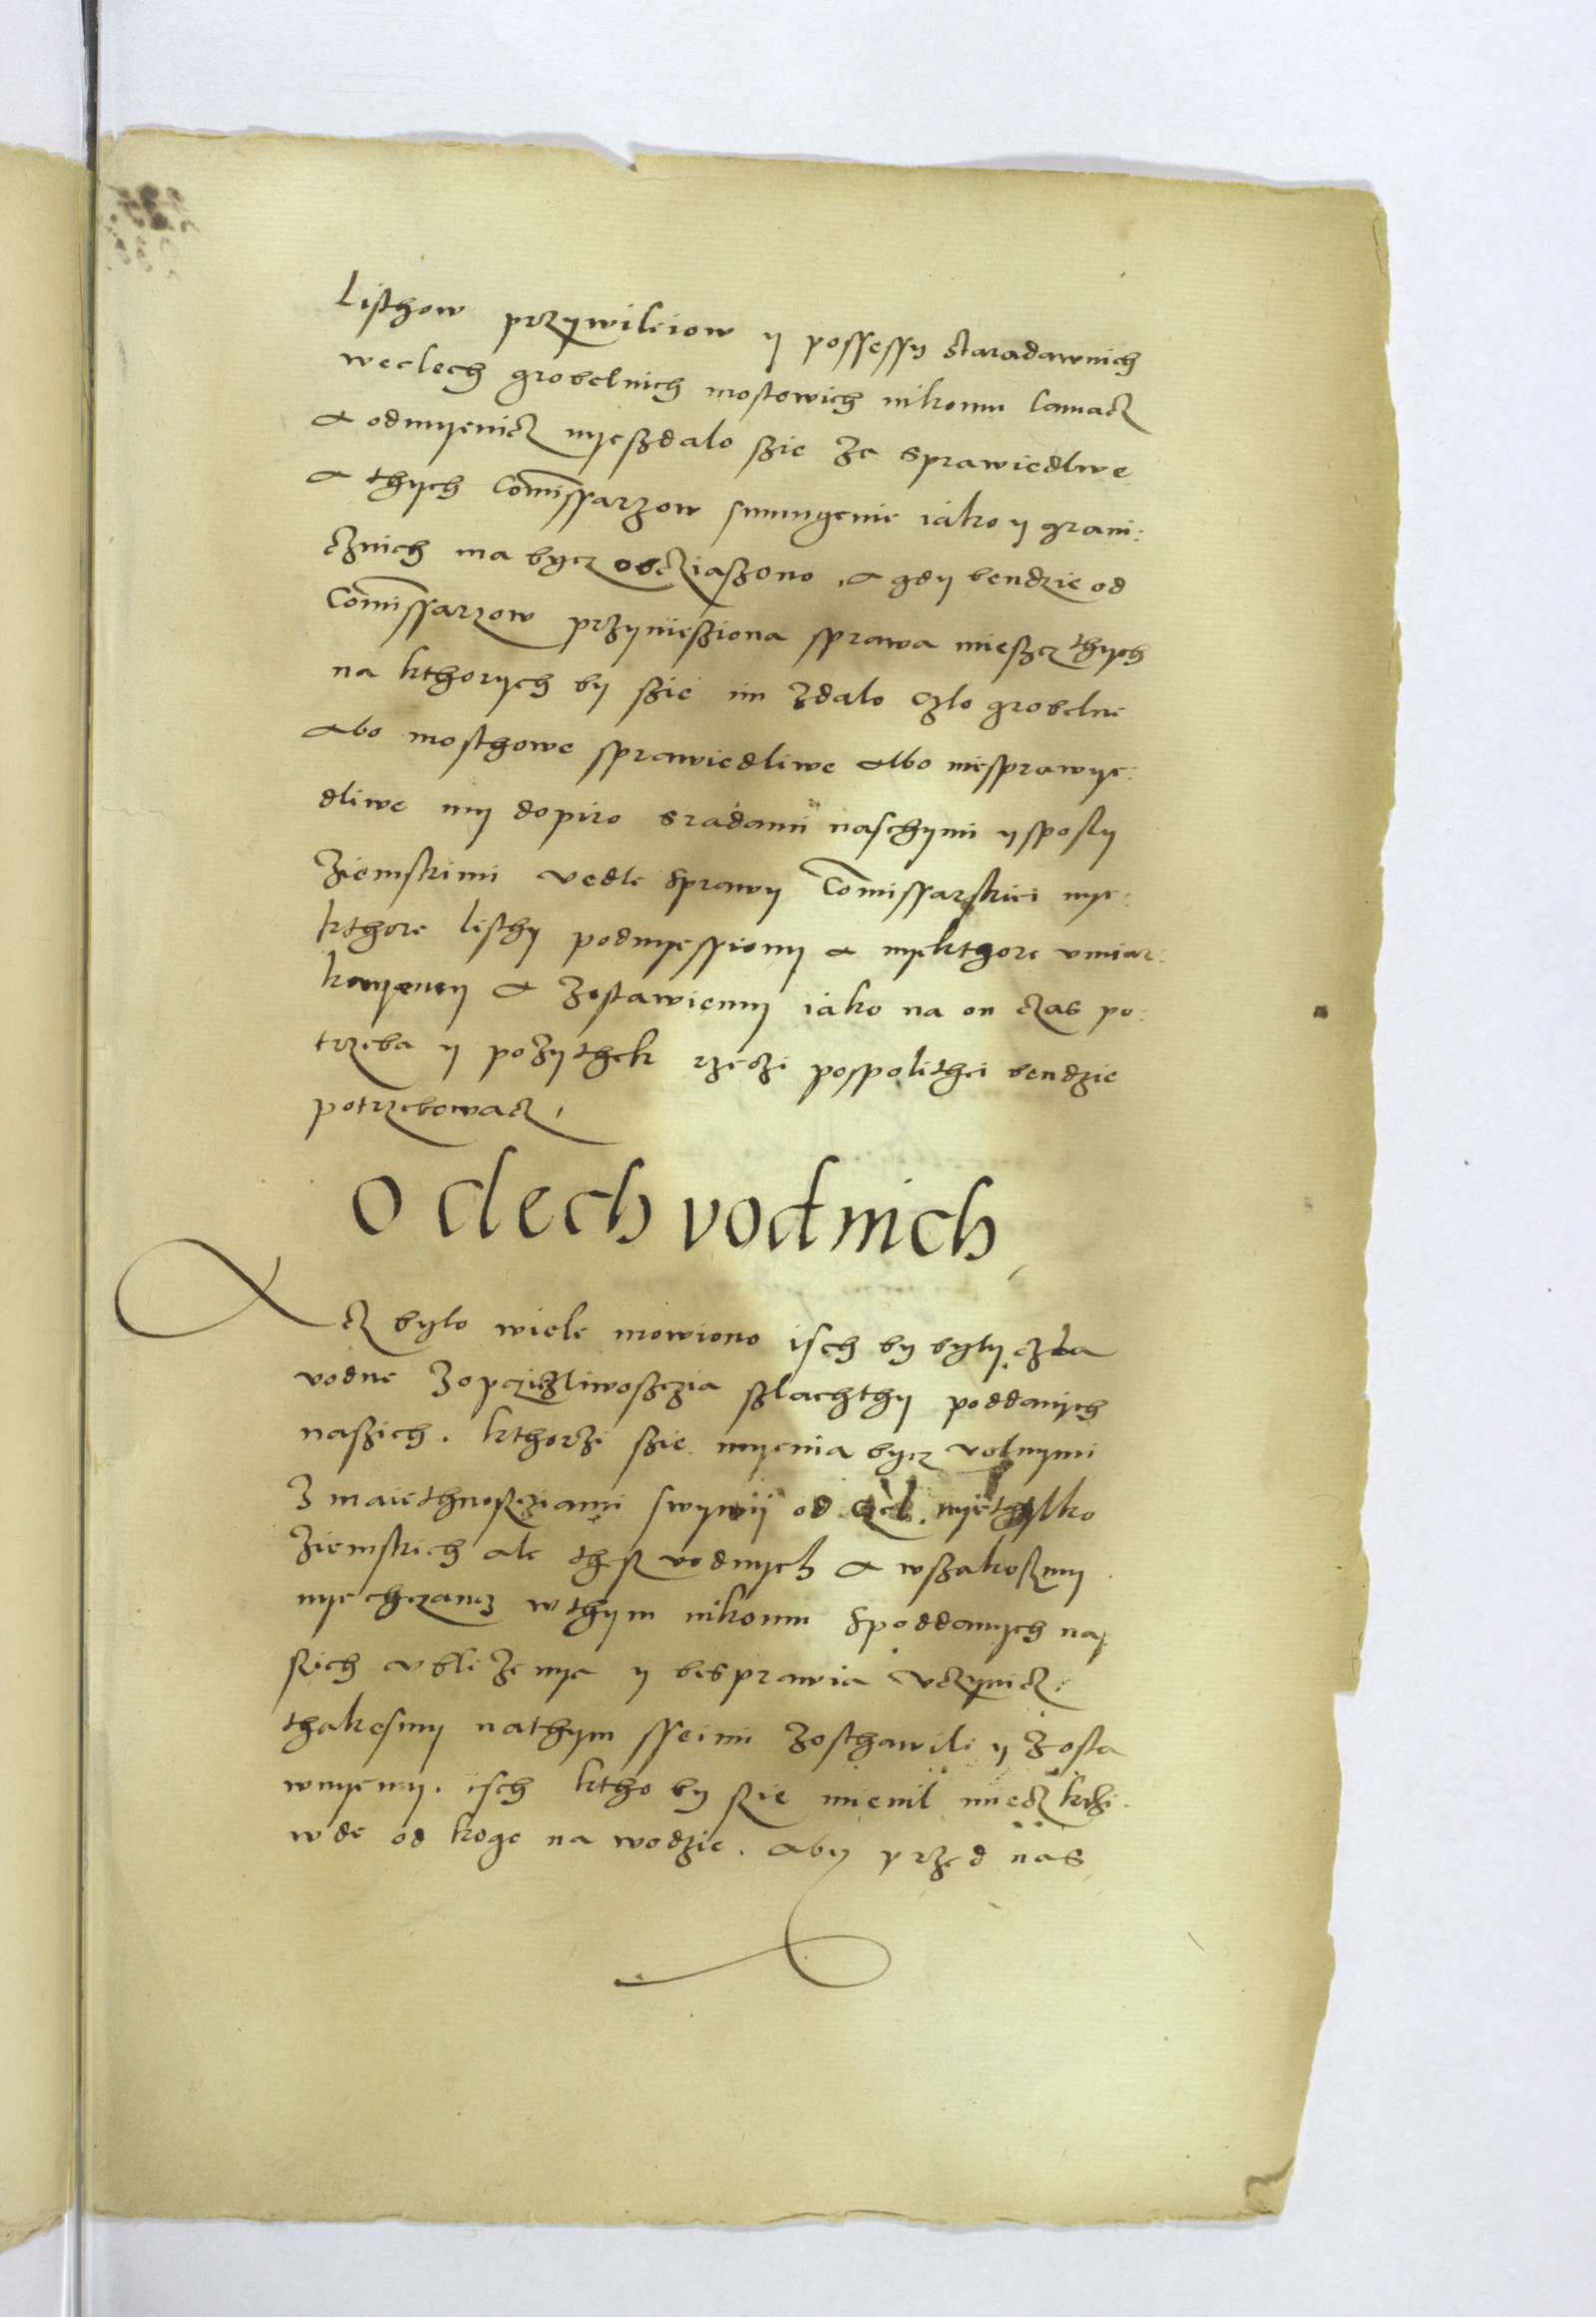 Listhow przywileiow y possessy staradawnich
weclech grobelnich mostowich nikomu lamacz
a odmyenicz nyeszdalo szie za sprawiedlwe
a thych Comissarzow sumnyenie iako y grani:
cznich ma bycz obcziaszono, a gdy bendzie od
Comissarzow przyniesziona sprawa mieszcz thych
na kthorych by szie im zdalo czlo grobelne
abo mosthowe sprawiedliwe albo niesprawye:
dliwe my dopiro sradami naschymi y sposly
ziemskimi vedle sprawy Comissarskiei nye:
kthore listhy podnyessiemy a nyekthore umiar:
kuyemy a zostawiemy iako na on czas po:
trzeba y pozythek rzeczi pospolithei bendzie
potrzebowacz,
O clech vodnich
Acz bylo wiele mowiono isch by byly czla
vodne zopcziezliwoszczia szlachthy poddanych
naszich. kthorzi szie myenia bycz volnymi
z maiethnoscziami swymy od czel nyethylko
ziemskich ale thesz vodnych a wszakoszmy
nyechczancz wthym nikomu spoddanych na:
szich ublizenya y besprawia uczynicz:
thakesmy nathym sseimi zosthawili y zosta
wuyemy. isch ktho by szie mienil miecz krzi
wde od kogo na wodzie. aby przed nas